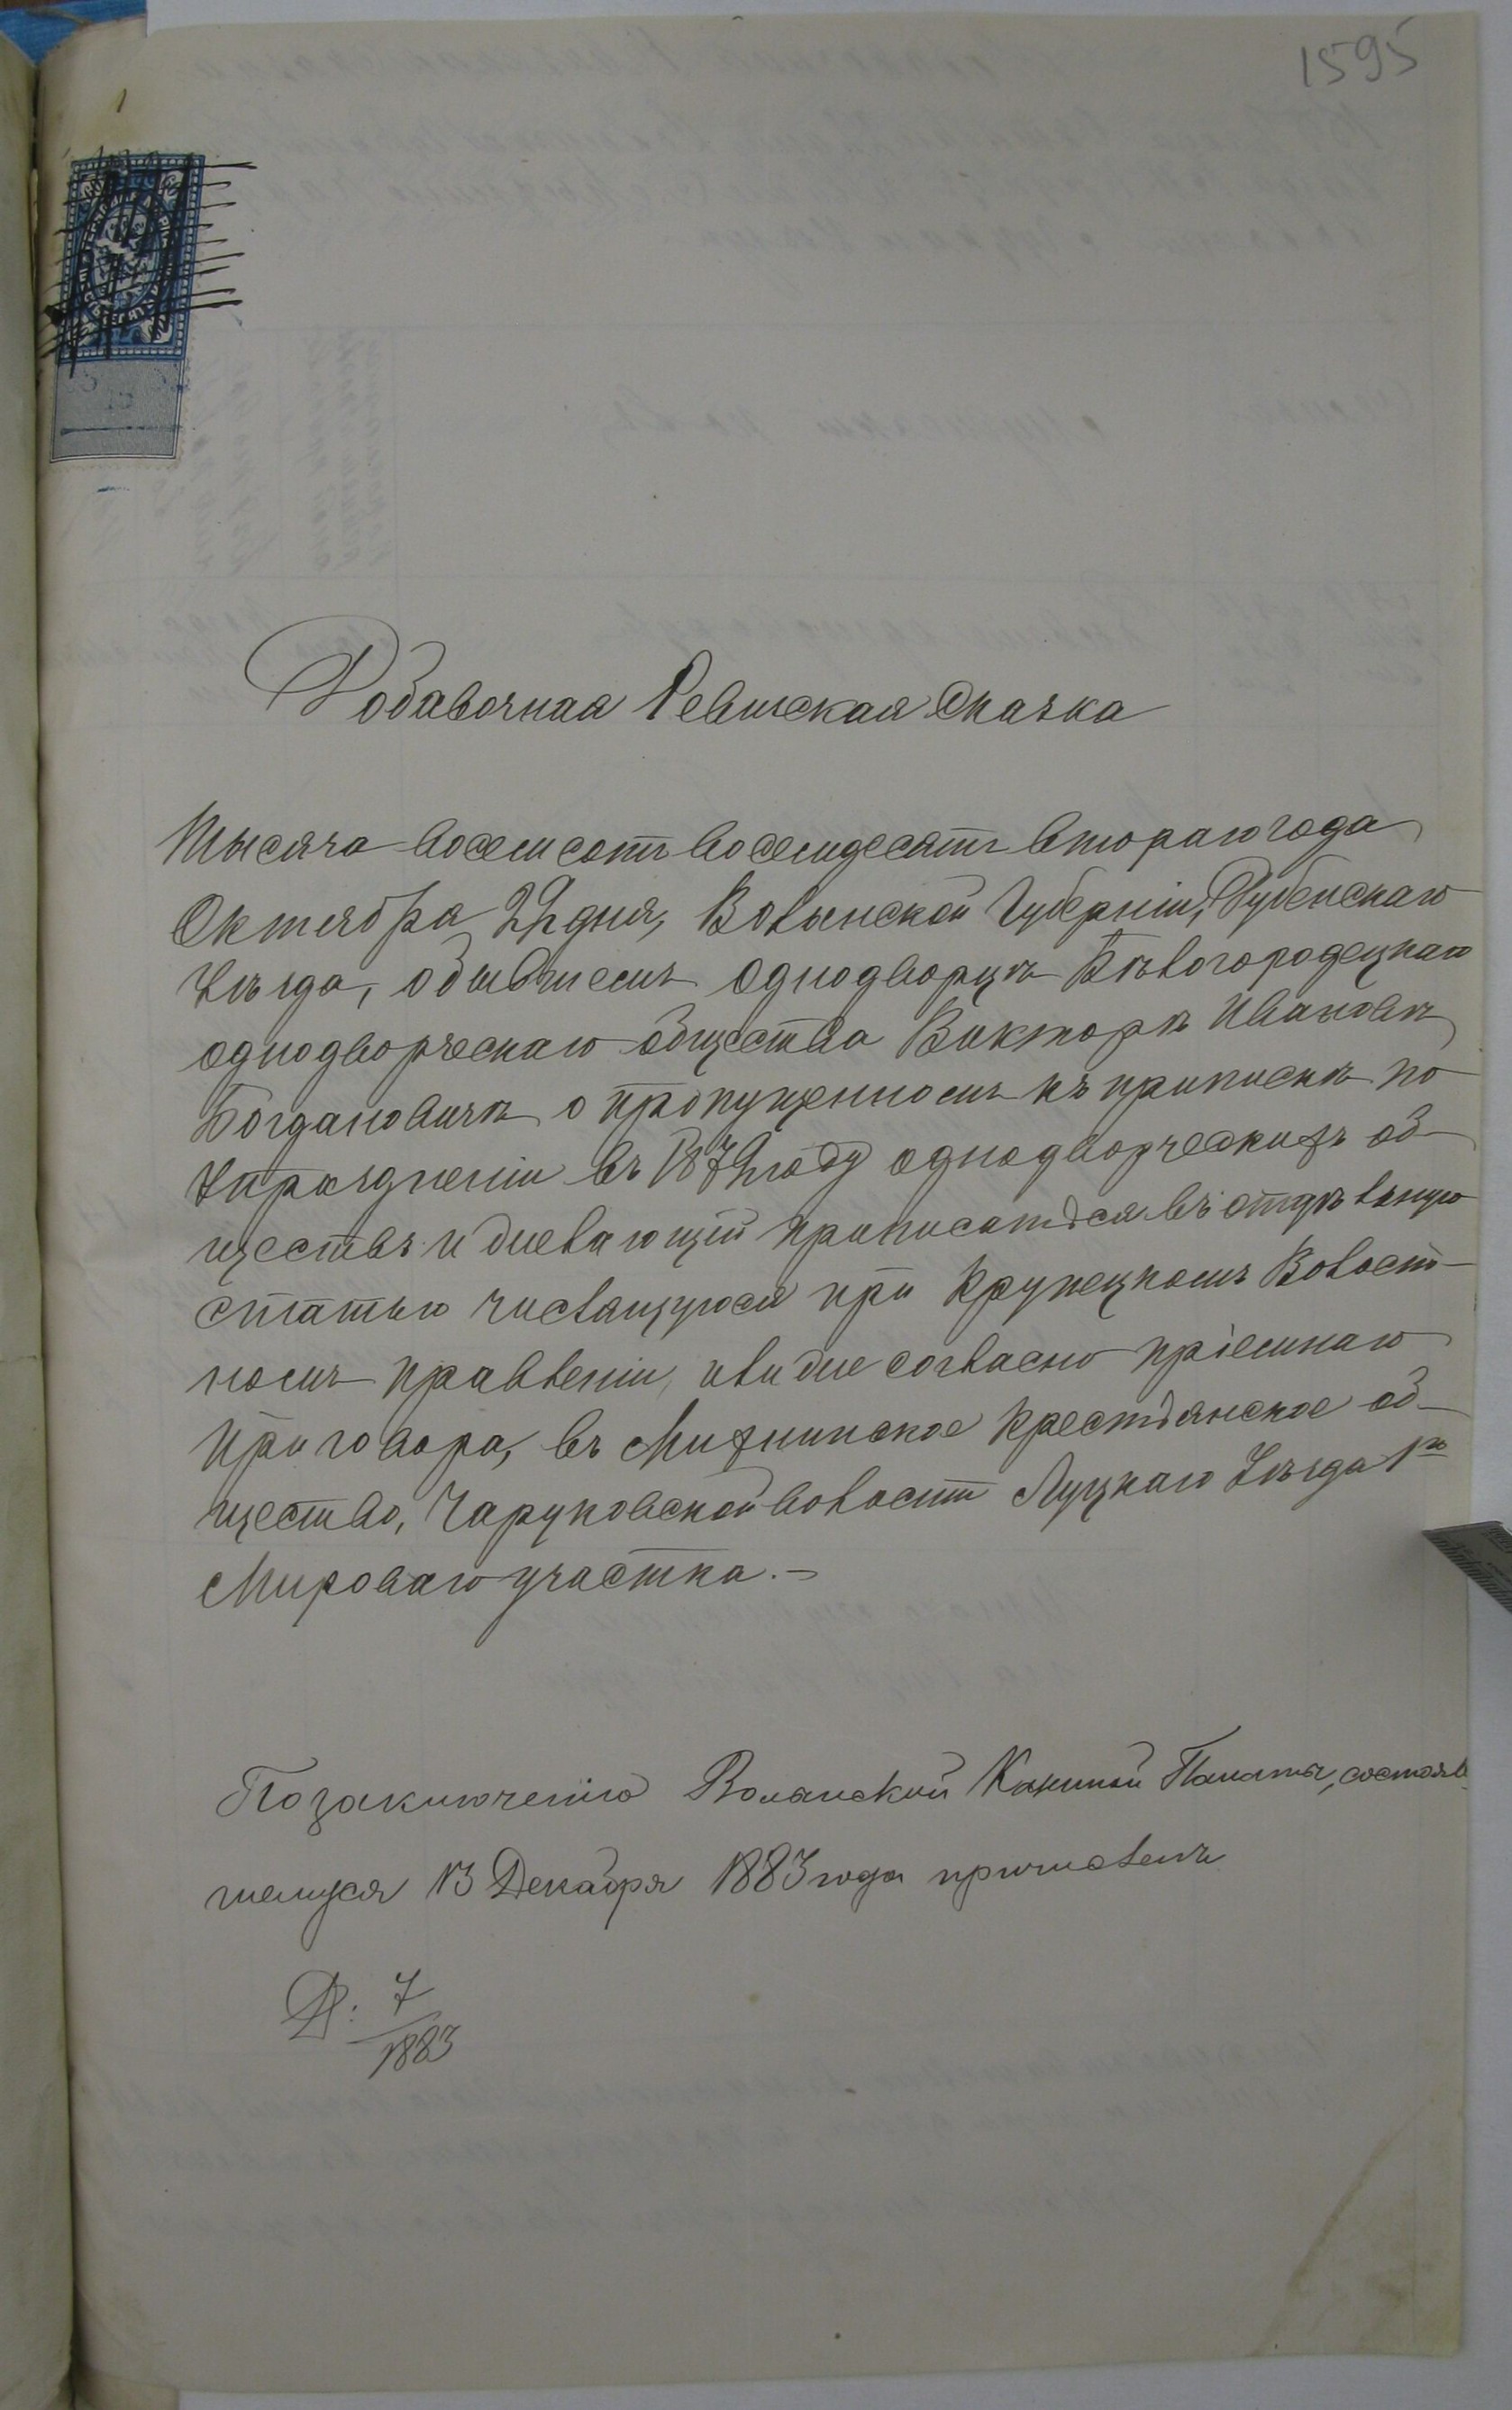 1595
Добавочная Ревизская Сказка
Тысяча восемсотъ восемдесятъ втораго года
Октября 22 дня, Волынской Губерніи, Дубенскаго
Уѣзда, о бывшемъ однодворцѣ Бѣлогородецкаго
однодворческаго общества Викторѣ Ивановѣ
Богдановичѣ о пропущенномъ къ припискѣ по
Упраздненіи въ 187 году однодворческихъ об-
ществъ и желающій приписатся въ отдѣльную
статью числящуюся при Крупецкомъ Волост-
номъ правленіи, или же согласно пріемнаго
приговора, въ крестьянское об-
щество, Чаруковской волости Луцкаго Уѣзда 1го
Мироваго участка.-
По заключенію Волынской Казенной Палаты, состояв-
шемуся 13 Декабря 1883 года причисленъ
Д: 7
1883